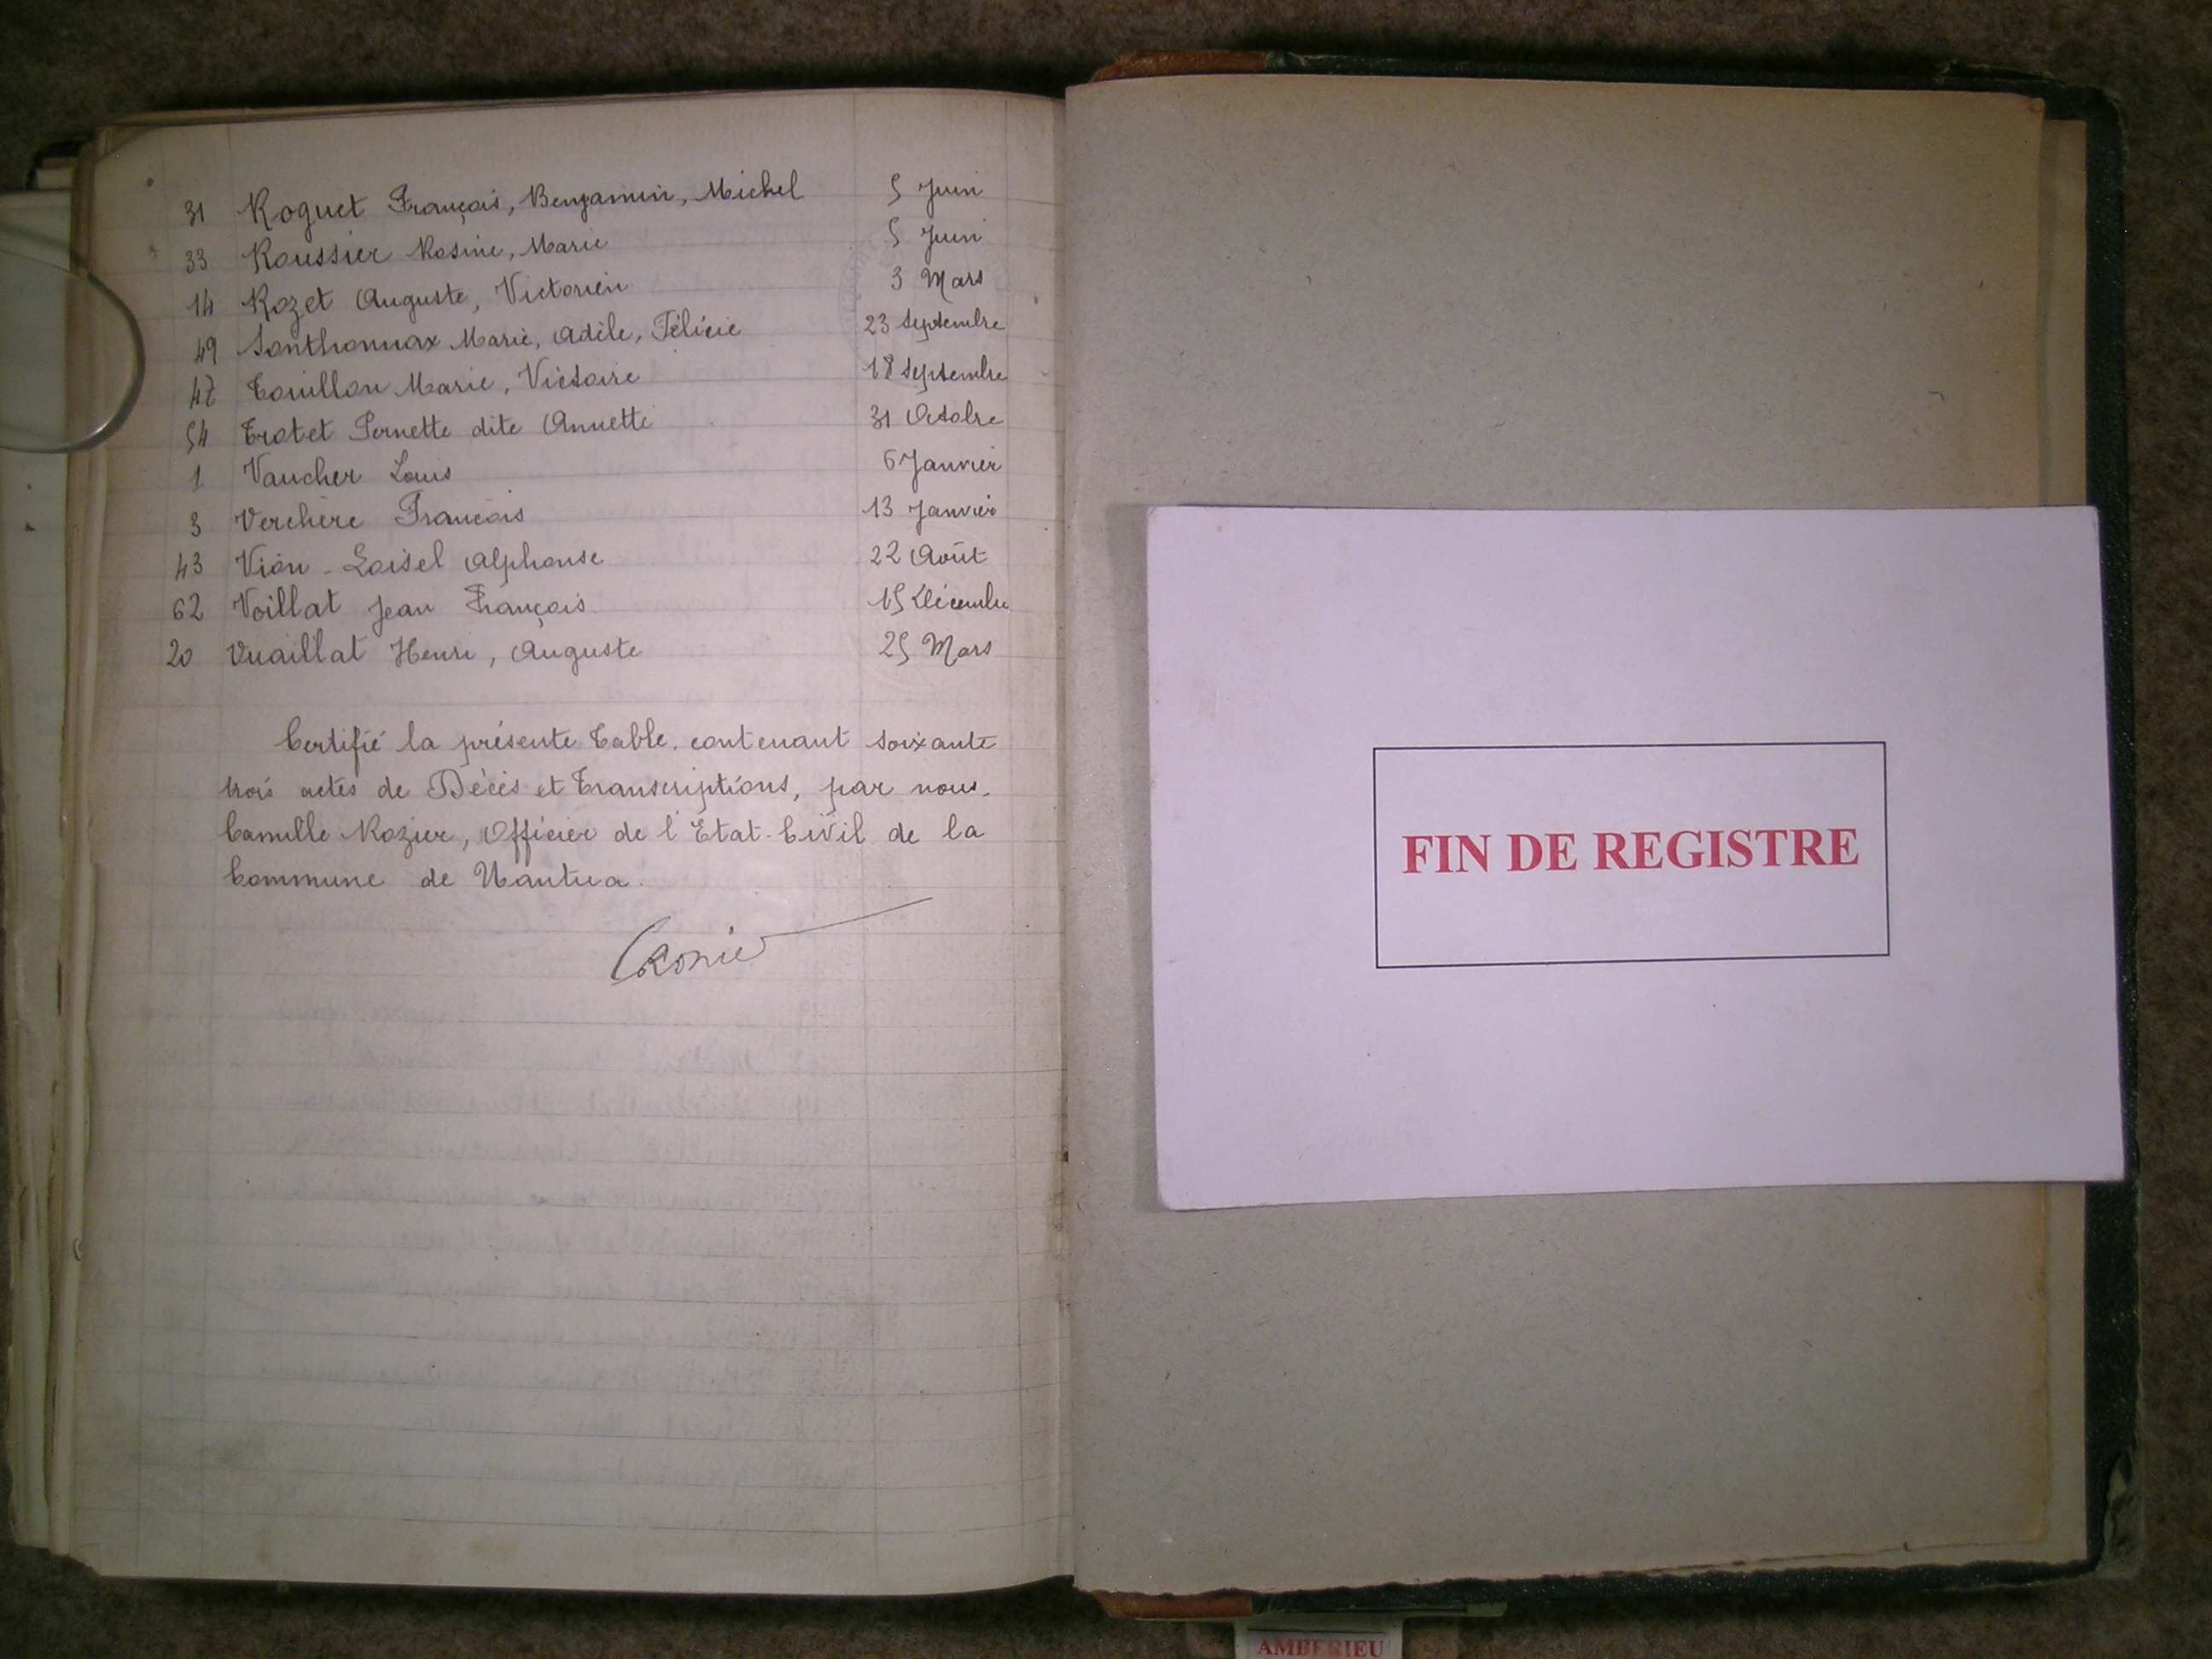 31 Roguet François, Benjamin, Michel 5 Juin
33 Roussier Rosine, Marie 5 Juin
14 Rozet Auguste, Victorien 3 Mars
49 Santhonnax Marie, Adèle, Félicie 23 Septembre
47 Touillon Marie, Victoire 18 Septembre
54 Trotet Pernette dite Annette 31 Octobre
1 Vaucher Louis 6 Janvier
3 Verchère François 13 Janvier
43 Vion-Loisel Alphonse 22 Août
62 Voillat Jean François 15 Décembre
20 Vuaillat Henri, Auguste 25 Mars
Certifié la présente Table contenant soixante
trois actes de Décès et Transcriptions, par nous,
Camille Rozier, Officier de l'Etat-Civil de la
Commune de Nantua.
FIN DE REGISTRE
AMBERIEU